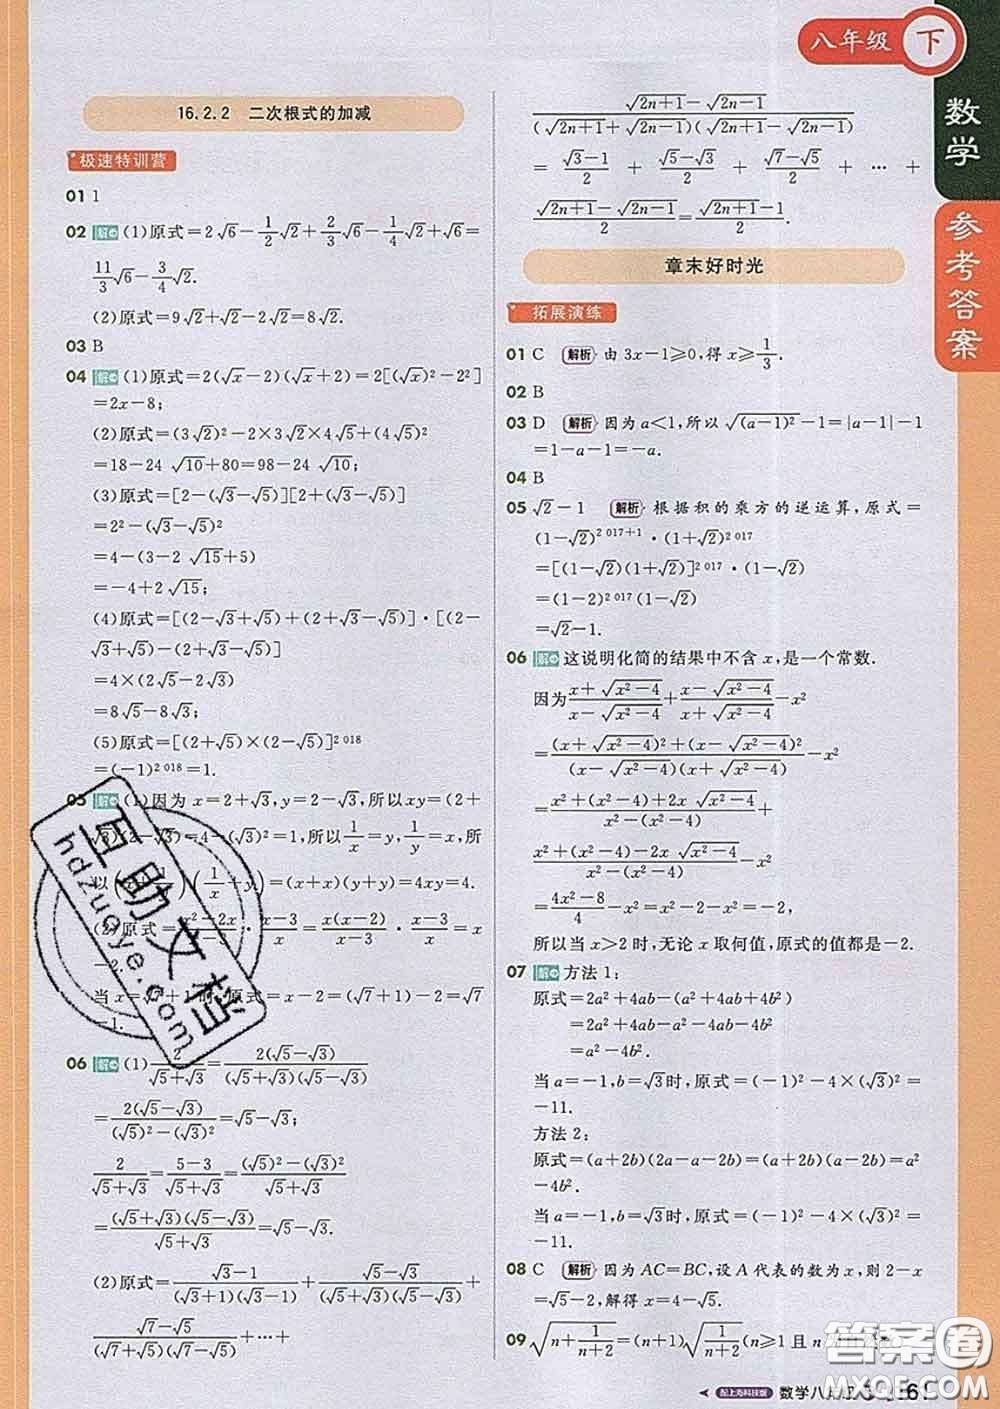 八年级 下
数学
参考答案
16.2.2 二次根式的加减
极速特训营
01 1
02 解 (1)原式=2√6-1/2√2+2/3√6-1/4√2+√6=
11/3√6-3/4√2.
(2)原式=9√2+√2-2√2=8√2.
03 B
04 解 (1)原式=2(√x-2)(√x+2)=2[(√x)²-2²]
=2x-8;
(2)原式=(3√2)²-2×3√2×4√5+(4√5)²
=18-24√10+80=98-24√10;
(3)原式=[2-(√3-√5)][2+(√3-√5)]
=2²-(√3-√5)²
=4-(3-2√15+5)
=-4+2√15;
(4)原式=[(2-√3+√5)+(2+√3-√5)]·[(2-
√3+√5)-(2+√3-√5)]
=4×(2√5-2√3)
=8√5-8√3;
(5)原式=[(2+√5)×(2-√5)]^2 018
=(-1)^2 018=1.
05 解 (1)因为x=2+√3,y=2-√3,所以xy=(2+
√3)(2-√3)=4-(√3)²=1,所以1/x=y,1/y=x,所
以(x+1/y)(1/x+y)=(x+x)(y+y)=4xy=4.
(2)原式=(x²-2x)/x·(x-3)/(x-3)=x(x-2)/(x-3)·(x-3)/x=
x-2.
当x=√7+1时,原式=x-2=(√7+1)-2=√7
-1.
06 解 (1)2/(√5+√3)=2(√5-√3)/((√5+√3)(√5-√3))
=2(√5-√3)/((√5)²-(√3)²)=√5-√3;
2/(√5+√3)=(5-3)/(√5+√3)=((√5)²-(√3)²)/(√5+√3)
=(√5+√3)(√5-√3)/(√5+√3)=√5-√3.
(2)原式=(√3-1)/((√3+1)(√3-1))+(√5-√3)/((√5+√3)(√5-√3))+
(√7-√5)/((√7+√5)(√7-√5))+…+
(√(2n+1)-√(2n-1))/((√(2n+1)+√(2n-1))(√(2n+1)-√(2n-1)))
=(√3-1)/2+(√5-√3)/2+(√7-√5)/2+…+
(√(2n+1)-√(2n-1))/2=(√(2n+1)-1)/2.
章末好时光
拓展演练
01 C 解析 由3x-1⩾0,得x⩾1/3.
02 B
03 D 解析 因为a<1,所以√((a-1)²)-1=|a-1|-1
=1-a-1=-a.
04 B
05 √2-1 解析 根据积的乘方的逆运算,原式=
(1-√2)^2 017+1·(1+√2)^2 017
=[(1-√2)(1+√2)]^2 017·(1-√2)
=(1-2)^2 017(1-√2)
=√2-1.
06 解 这说明化简的结果中不含x,是一个常数.
因为(x+√(x²-4))/(x-√(x²-4))+(x-√(x²-4))/(x+√(x²-4))-x²
=((x+√(x²-4))²+(x-√(x²-4))²)/((x-√(x²-4))(x+√(x²-4)))-x²
=(x²+(x²-4)+2x√(x²-4))/(x²-(x²-4))+
(x²+(x²-4)-2x√(x²-4))/(x²-(x²-4))-x²
=(4x²-8)/4-x²=x²-2-x²=-2,
所以当x>2时,无论x取何值,原式的值都是-2.
07 解 方法1:
原式=2a²+4ab-(a²+4ab+4b²)
=2a²+4ab-a²-4ab-4b²
=a²-4b².
当a=-1,b=√3时,原式=(-1)²-4×(√3)²=
-11.
方法2:
原式=(a+2b)(2a-a-2b)=(a+2b)(a-2b)=a²
-4b².
当a=-1,b=√3时,原式=(-1)²-4×(√3)²=
-11.
08 C 解析 因为AC=BC,设A代表的数为x,则2-x
=√5-2,解得x=4-√5.
09 √(n+1/(n+2))=(n+1)√(1/(n+2))(n⩾1且n
配上海科技版 数学八
61
互助文档
hdzuoye.com
答案圈
MXQE.COM